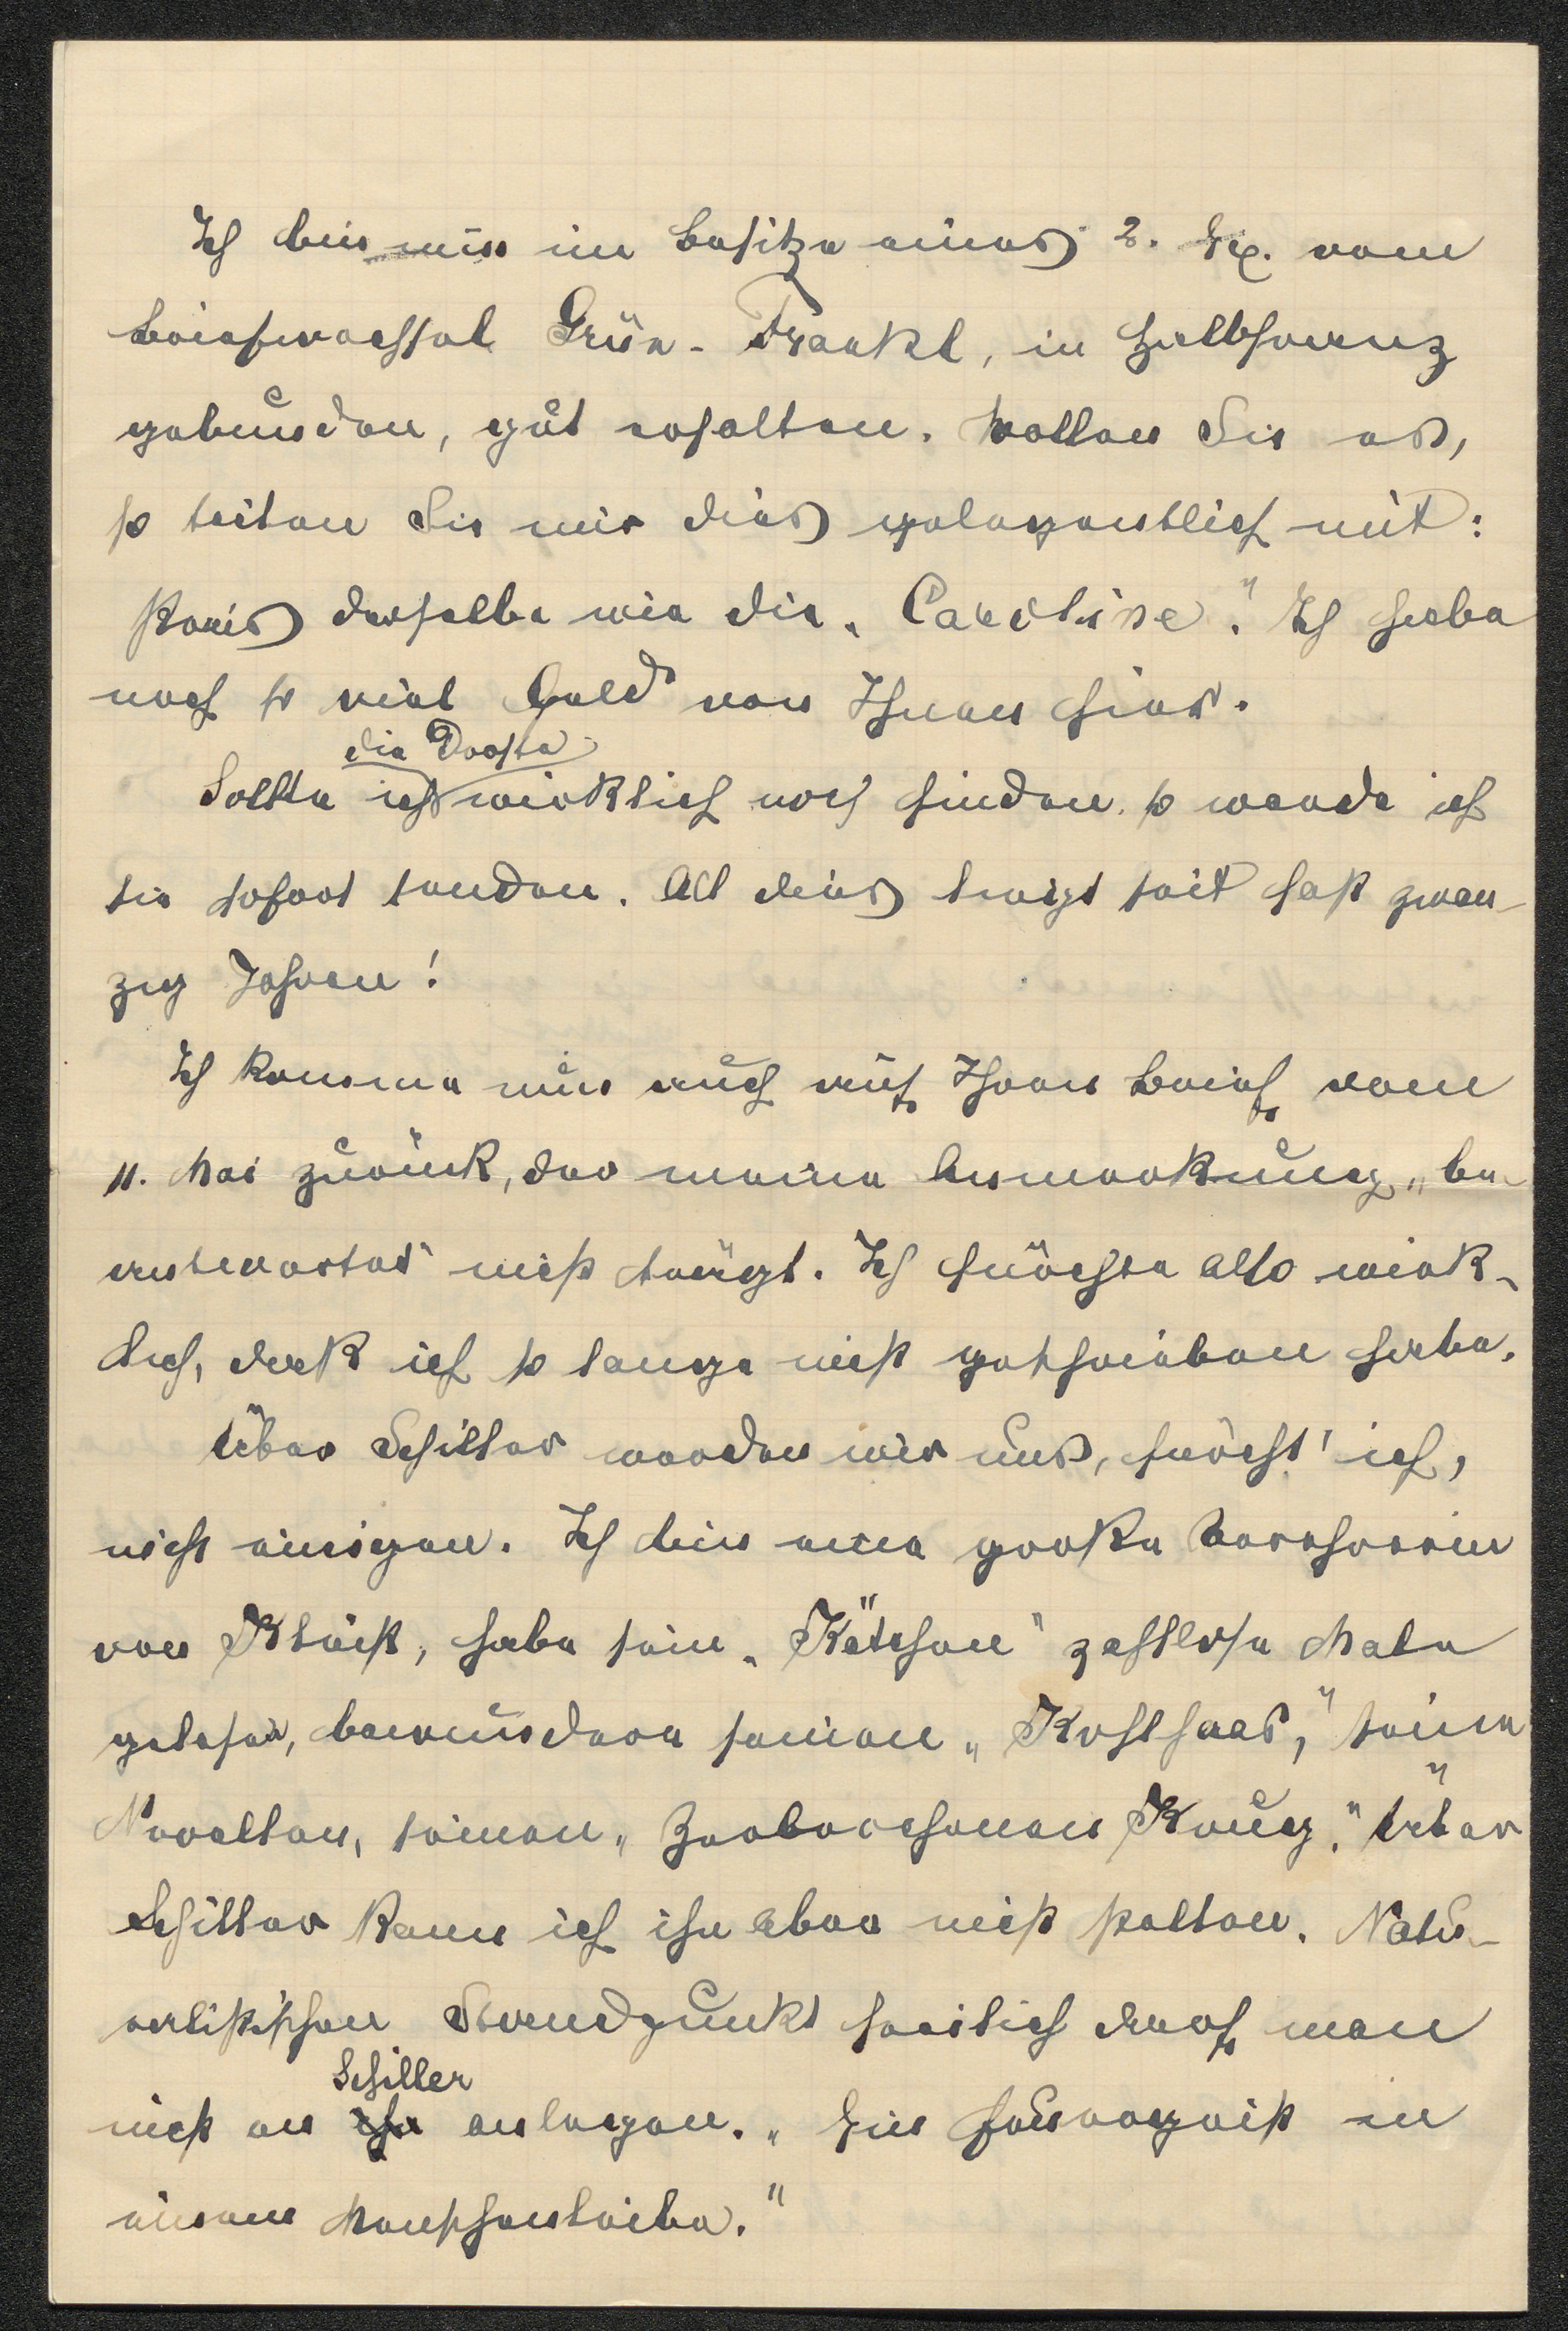 Ich bin nun im Besitze eines 2. Ex. vom
Briefwechsel Grün-Frankl, in Halbfranz
gebunden, gut erhalten. Wollen Sie es,
so teilen Sie mir dies gelegentlich mit:
Preis derselbe wie die „Caroline". Ich habe
noch so viel Geld von Ihnen hier.
die Droste
Sollte ich wirklich noch finden, so werde ich
sie sofort senden. All dies liegt seit fast zwan-
zig Jahren!
Ich komme nun auch auf Ihren Brief vom
11. Mai zurück, der meine Anmerkung „be-
antwortet" nicht trägt. Ich fürchte also wirk-
lich, daß ich so lange nicht geschrieben habe.
Über Schiller werden wir uns, fürcht' ich,
nicht einigen. Ich bin eine große Verehrerin
von Kleist, habe sein „Kätchen" zahllose Male
gelesen, bewundere seinen „Kohlhaas", seine
Novellen, seinen „Zerbrochenen Krug". Über
Schiller kann ich ihn aber nicht stellen. Natu-
ralistischen Standpunkt freilich darf man
Schiller
nicht an ihn anlegen. „Ein Feuergeist in
einem Menschenleibe."